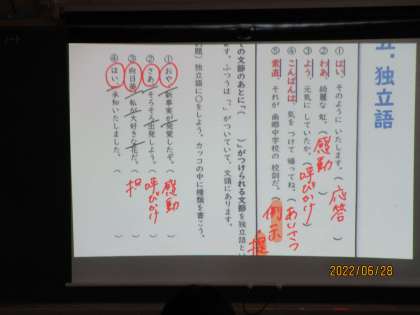 五．独立語
①はい、そのように いたします。（応答）
②わあ、綺麗な 虹。（感動）
③よう、元気に していたか。（呼びかけ）
④こんばんは、気を つけて 帰ってね。（あいさつ）
⑤素直、それが 歯郷中学校の 校訓だ。（例示 提
の文節のあとに「（　）」がつけられる文節を独立語とい
ます。ふつうは「、」がついていて、文頭にあります。
独立語に〇をしよう。カッコの中に種類を書こう。
①おや、新事実が発覚したぞ。（感動）
②さあ、そろそろ出発しよう。（呼びかけ）
③向日葵、私が大好きな花だ。（提
④はい、承知いたしました。（　）
2022/06/28